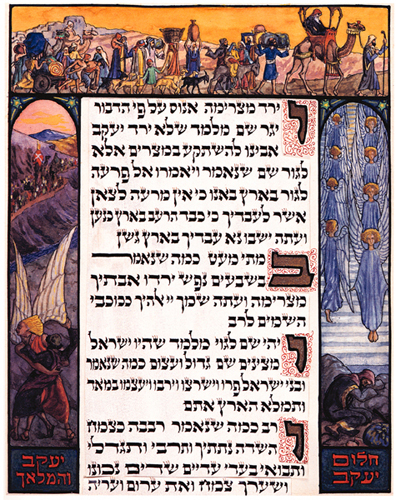 וירד מצרימה אנוס על פי הדבור
יגר שם מלמד שלא ירד יעקב
אבינו להשתקע במצרים אלא
לגור שם שנאמר ויאמרו אל פרעה
לגור בארץ באנו כי אין מרעה לצאן
אשר לעבדיך כי כבד הרעב בארץ כנען
ועתה ישבו נא עבדיך בארץ גשן
במתי מעט כמה שנאמר
בשבעים נפש ירדו אבתיך
מצרימה ועתה שמך יי אלהיך ככוכבי
השמים לרב
ויהי שם לגוי מלמד שהיו ישראל
מצינים שם גדול ועצום כמה שנאמר
ובני ישראל פרו וישרצו וירבו ויעצמו במאד
ותמלא הארץ אתם
ורב כמה שנאמר רבבה כצמח
השדה נתתיך ותרבי ותגדלי
ותבואי בעדי עדיים שדים נכונו
ושערך צמח ואת ערום ועריה
חלום
יעקב
יעקב
והמלאך